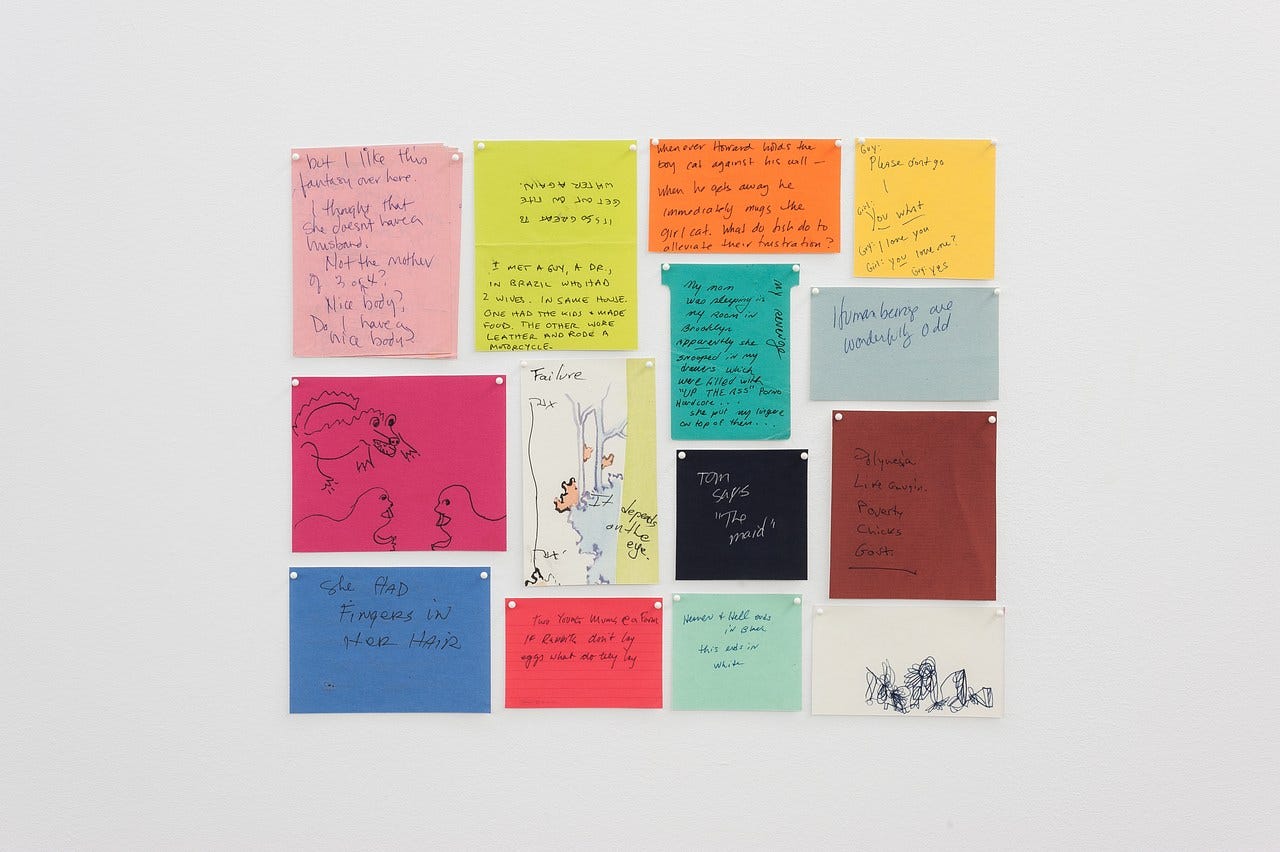 but I like this
fantasy over here.
I thought that
she doesn't have a
husband.
Not the mother
of 3 or 4?
Nice body?
Do I have a
nice body?
IT'S SO GREAT TO
GET OUT ON THE
WATER AGAIN.
I MET A GUY, A DR.,
IN BRAZIL WHO HAD
2 WIVES. IN SAME HOUSE.
ONE HAD THE KIDS + MADE
FOOD. THE OTHER WORE
LEATHER AND RODE A
MOTORCYCLE.
whenever Howard holds the
boy cat against his will —
when he gets away he
immediately mugs the
girl cat. What do fish do to
alleviate their frustration?
Guy:
Please don't go
I
Girl:
You what
Guy: I love you
Girl: you love me?
Guy yes
My mom
was sleeping in
my room in
Brooklyn
Apparently she
snooped in my
drawers which
were filled with
"UP THE ASS" Porno
Hardcore...
she put my lingere
on top of them...
my revenge
Human beings are
wonderfully odd
Failure
It
depends
on the
eye.
Tom
says
"The
maid"
Polynesia
Live
Poverty
Chicks
Govt.
She HAD
Fingers in
HER HAIR
Two Young Mums @ a Farm
IF Rabbits don't lay
eggs what do they lay
Heaven + Hell ends
in Black
this ends in
white